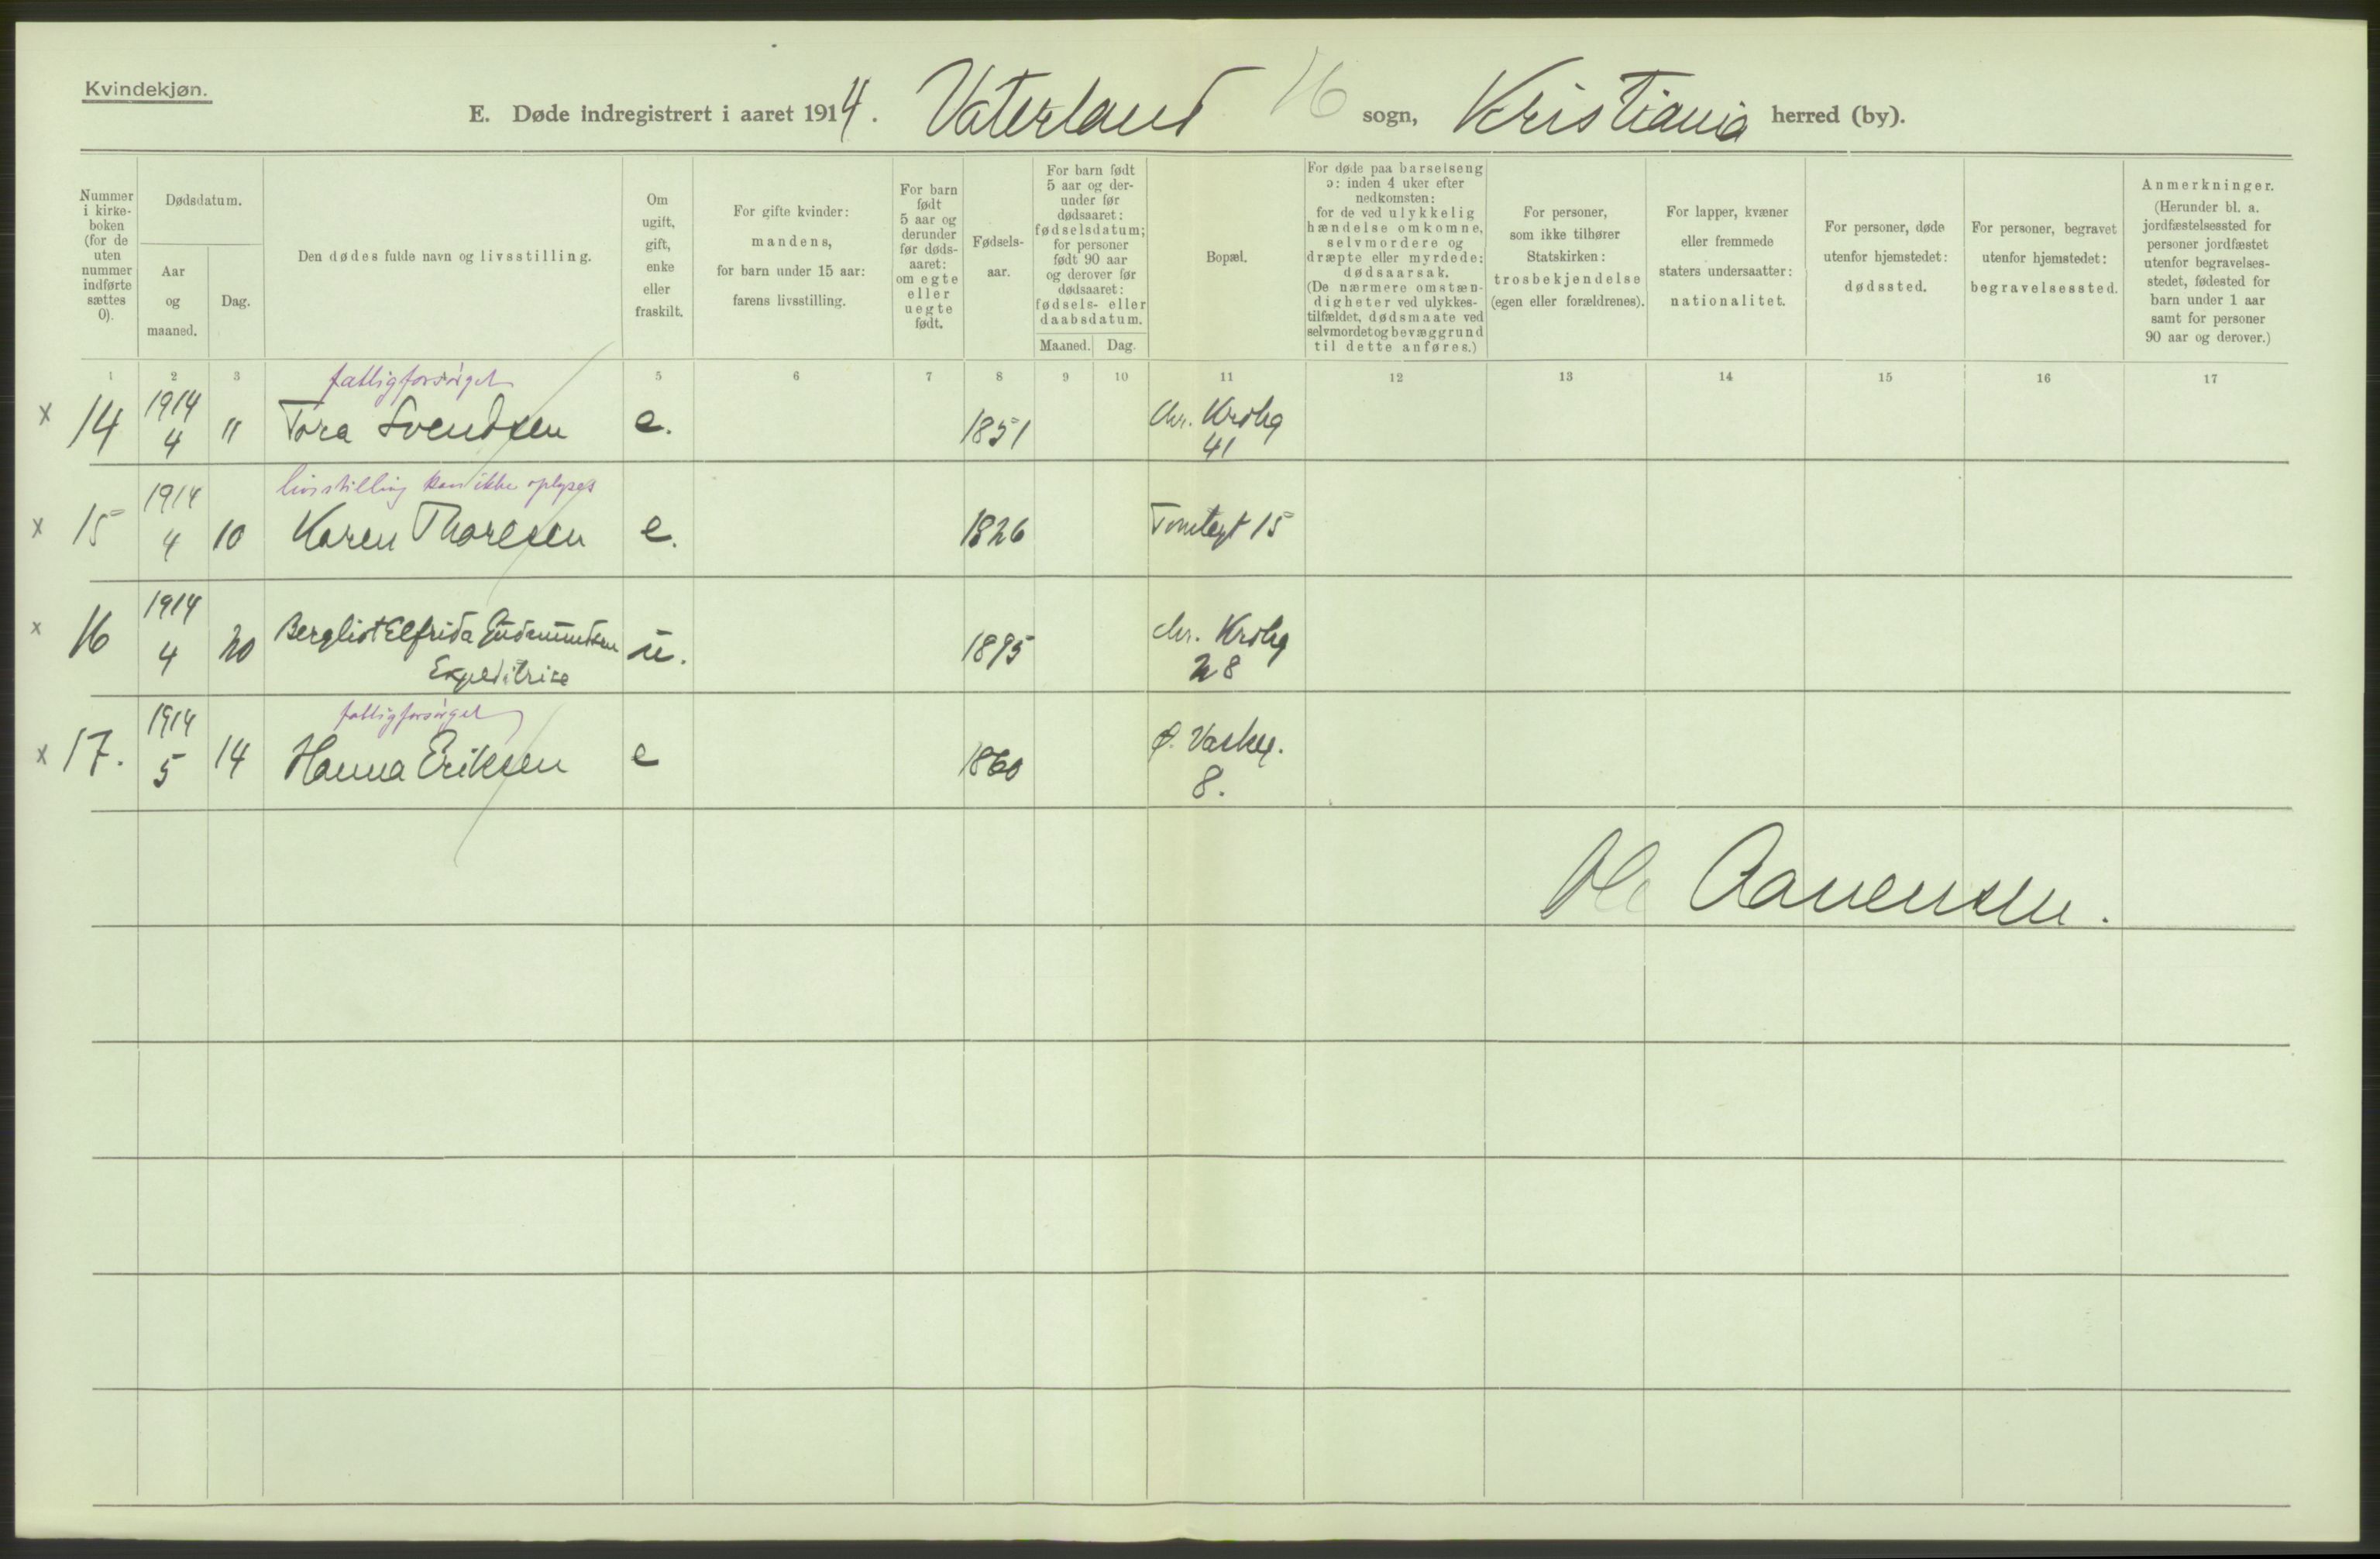 Kvindekjøn.
E. Døde indregistrert i aaret 1914. Vaterland 16 sogn, Kristiania herred (by).
Nummer i kirkeboken (for de uten nummer indførte sættes 0).
Dødsdatum.
Aar og maaned.
Dag.
Den dødes fulde navn og livsstilling.
Om ugift, gift, enke eller fraskilt.
For gifte kvinder: mandens, for barn under 15 aar: farens livsstilling.
For barn født 5 aar og derunder før dødsaaret: om egte eller uegte født.
Fødselsaar.
For barn født 5 aar og derunder før dødsaaret: fødselsdatum; for personer født 90 aar og derover før dødsaaret: fødsels- eller daabsdatum.
Maaned. Dag.
Bopæl.
For døde paa barselseng ɔ: inden 4 uker efter nedkomsten: for de ved ulykkelig hændelse omkomne, selvmordere og dræpte eller myrdede: dødsaarsak. (De nærmere omstændigheter ved ulykkestilfældet, dødsmaate ved selvmordet og bevæggrund til dette anføres.)
For personer, som ikke tilhører Statskirken: trosbekjendelse (egen eller forældrenes).
For lapper, kvæner eller fremmede staters undersaatter: nationalitet.
For personer, døde utenfor hjemstedet: dødssted.
For personer, begravet utenfor hjemstedet: begravelsessted.
Anmerkninger. (Herunder bl. a. jordfæstelsessted for personer jordfæstet utenfor begravelsesstedet, fødested for barn under 1 aar samt for personer 90 aar og derover.)
1 2 3 5 6 7 8 9 10 11 12 13 14 15 16 17
fattigforsørget
x 14 1914 4 " Tora Svendsen e. 1851 Chr. Krohg 41
livsstilling kan ikke oplyses
x 15 1914 4 10 Karen Thoresen e. 1826 Tomtegt 15
x 16 1914 4 20 Bergliot Elfrida Gudmundsen u. 1895 Chr. Krohg 28
Expeditrice
fattigforsørget
x 17. 1914 5 14 Hanna Eriksen e 1860 Ø. Vaskeg. 8.
Ole Aanensen.